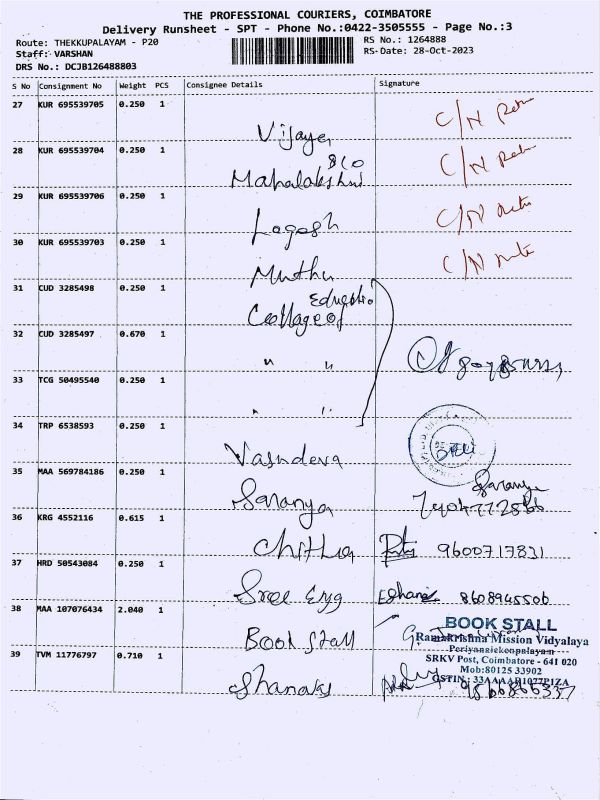 THE PROFESSIONAL COURIERS, COIMBATORE
Delivery Runsheet - SPT - Phone No.:0422-3505555 - Page No.:3
Route: THEKKUPALAYAM - P20
Staff: VARSHAN
DRS No.: DCJB126488803
RS No.: 1264888
RS-Date: 28-Oct-2023
S No Consignment No Weight PCS Consignee Details Signature
27 KUR 695539705 0.250 1
Vijaya C/N
28 KUR 695539704 0.250 1
Mahalakshmi C/N
29 KUR 695539706 0.250 1
Logesh C/N
30 KUR 695539703 0.250 1
Muthu C/N
31 CUD 3285498 0.250 1
College of Education
32 CUD 3285497 0.670 1
" "
33 TCG 50495540 0.250 1
" "
34 TRP 6538593 0.250 1
Vasudeva
35 MAA 569784186 0.250 1
Saranya Saranya
36 KRG 4552116 0.615 1
Chithra 9600717831
37 HRD 50543084 0.250 1
Sree Eng 8608945506
38 MAA 107076434 2.040 1
Book Stall
BOOK STALL
Ramakrishna Mission Vidyalaya
Periyanaickenpalayam
SRKV Post, Coimbatore - 641 020
Mob:80125 33902
39 TVM 11776797 0.710 1